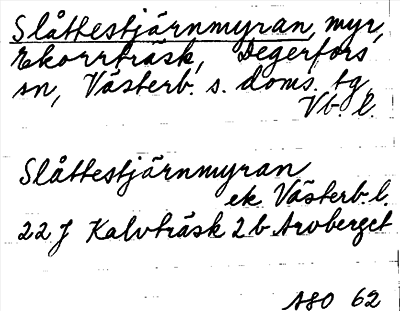 Slåttestjärnmyran, myr,
Ekorrträsk, Degerfors
sn, Västerb. s. doms. tg,
Vb. l.
Slåttestjärnmyran
ek Västerb. l.
22 J Kalvträsk 2 b Arvberget
ASO 62